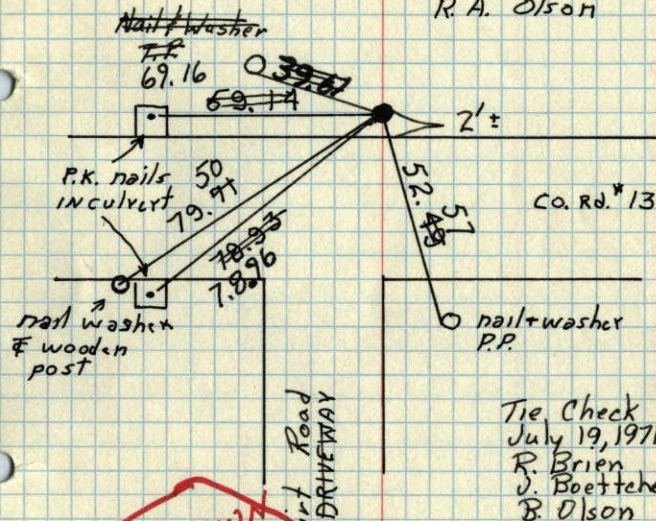 R. A. Olson
Nail & Washer
T.P.
69.16
39.61
69.14
2' ±
P.K. nails
in culvert
50
79.71
78.93
78.96
52.49
57
Co. Rd. # 13
nail washer
₵ wooden
post
nail + washer
P.P.
irt Road
DRIVEWAY
Tie Check
July 19, 197
R. Brien
J. Boettche
B. Olson